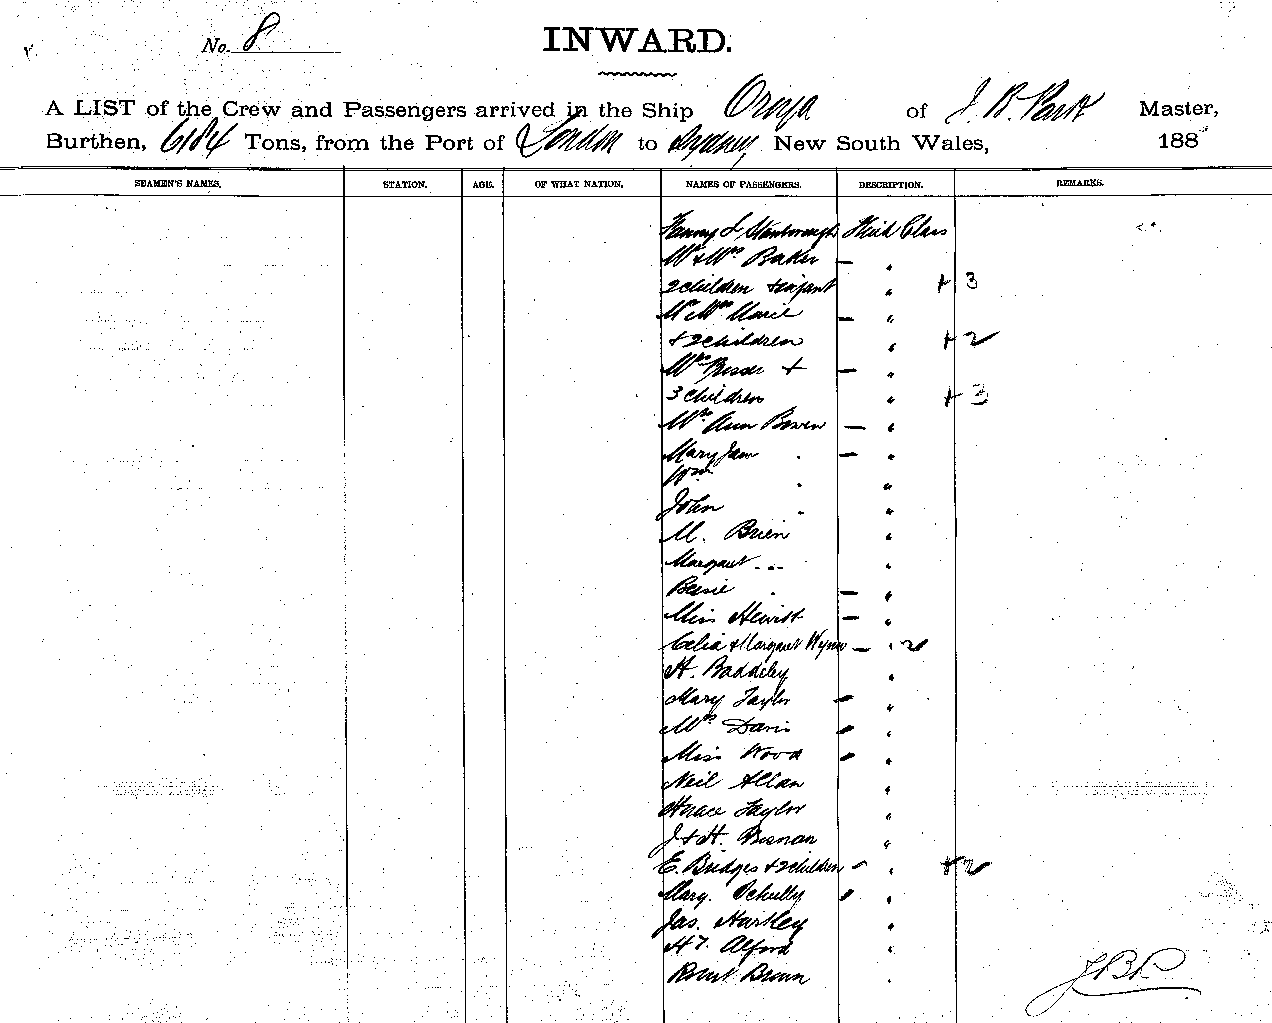 No. 8
INWARD.
A LIST of the Crew and Passengers arrived in the Ship Oroya of J. B. Park Master,
Burthen, 6184 Tons, from the Port of London to Sydney New South Wales, 188
SEAMEN'S NAMES. STATION. AGE. OF WHAT NATION. NAMES OF PASSENGERS. DESCRIPTION. REMARKS.
Fanny L Third Class
Mr & Mrs Baker — "
2 children & infant " + 3
Mr Mrs — "
+ 2 children " + 2
Mrs + — "
3 children " + 3
Mrs Ann Bowen — "
Mary Jane " — "
Wm " "
John " "
M. Brien "
Margaret " "
Bessie " — "
Miss Hewitt — "
Celia & Margaret Wynn — " 2
H. Baddeley "
Mary Taylor — "
Mrs Davis — "
Miss Wood — "
Neil Allan "
Horace Taylor "
J & H. "
E. Bridges & 2 children — " + 2
Marg. Schully — "
Jas. Hartley "
H T. Alford "
Robert Brown "
JBP